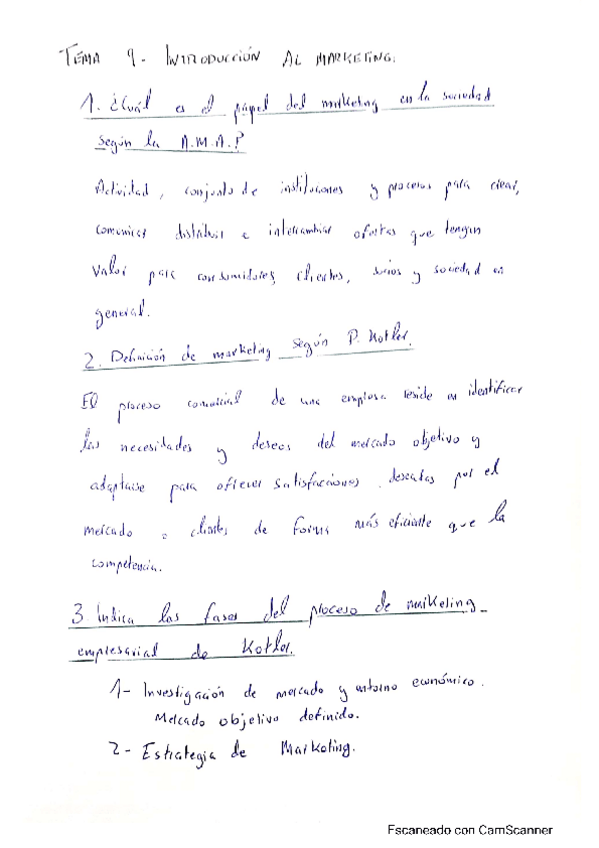 TEMA 9.- INTRODUCCIÓN AL MARKETING.
1. ¿Cuál es el papel del marketing en la sociedad
según la A.M.A.?
Actividad, conjunto de instituciones y procesos para crear,
comunicar distribuir e intercambiar ofertas que tengan
valor para consumidores, clientes, socios y sociedad en
general.
2. Definición de marketing según P. Kotler.
El proceso comercial de una empresa reside en identificar
las necesidades y deseos del mercado objetivo y
adaptarse para ofrecer satisfacciones deseadas por el
mercado o clientes de forma más eficiente que la
competencia.
3 Indica las fases del proceso de marketing
empresarial de Kotler.
1- Investigación de mercado y entorno económico.
Mercado objetivo definido.
2- Estrategia de Marketing.
Escaneado con CamScanner